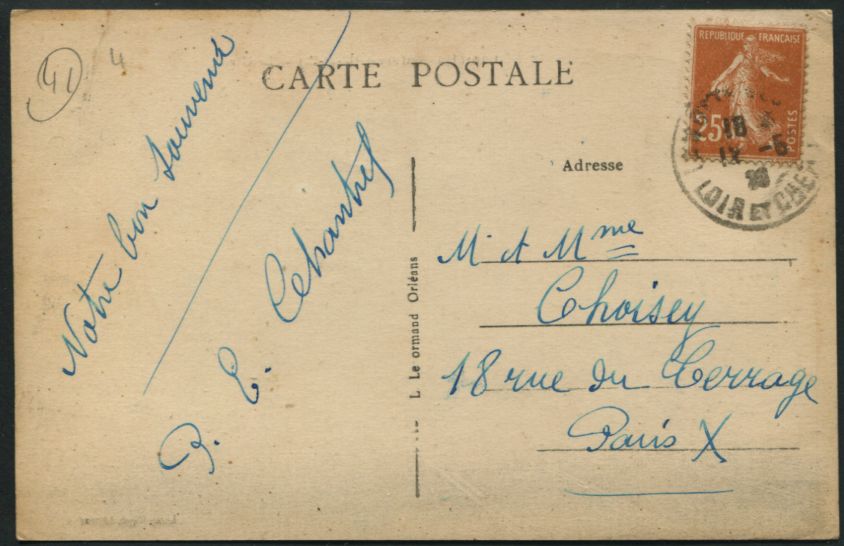 41
4
CARTE POSTALE
REPUBLIQUE FRANÇAISE
25
POSTES
18
12 -6
LOIR ET CHER
Adresse
Notre bon souvenir
P. E. Lehantrel
L. Le ormand Orléans
Mr et Mme
Choisey
18 rue du Terrage
Paris X